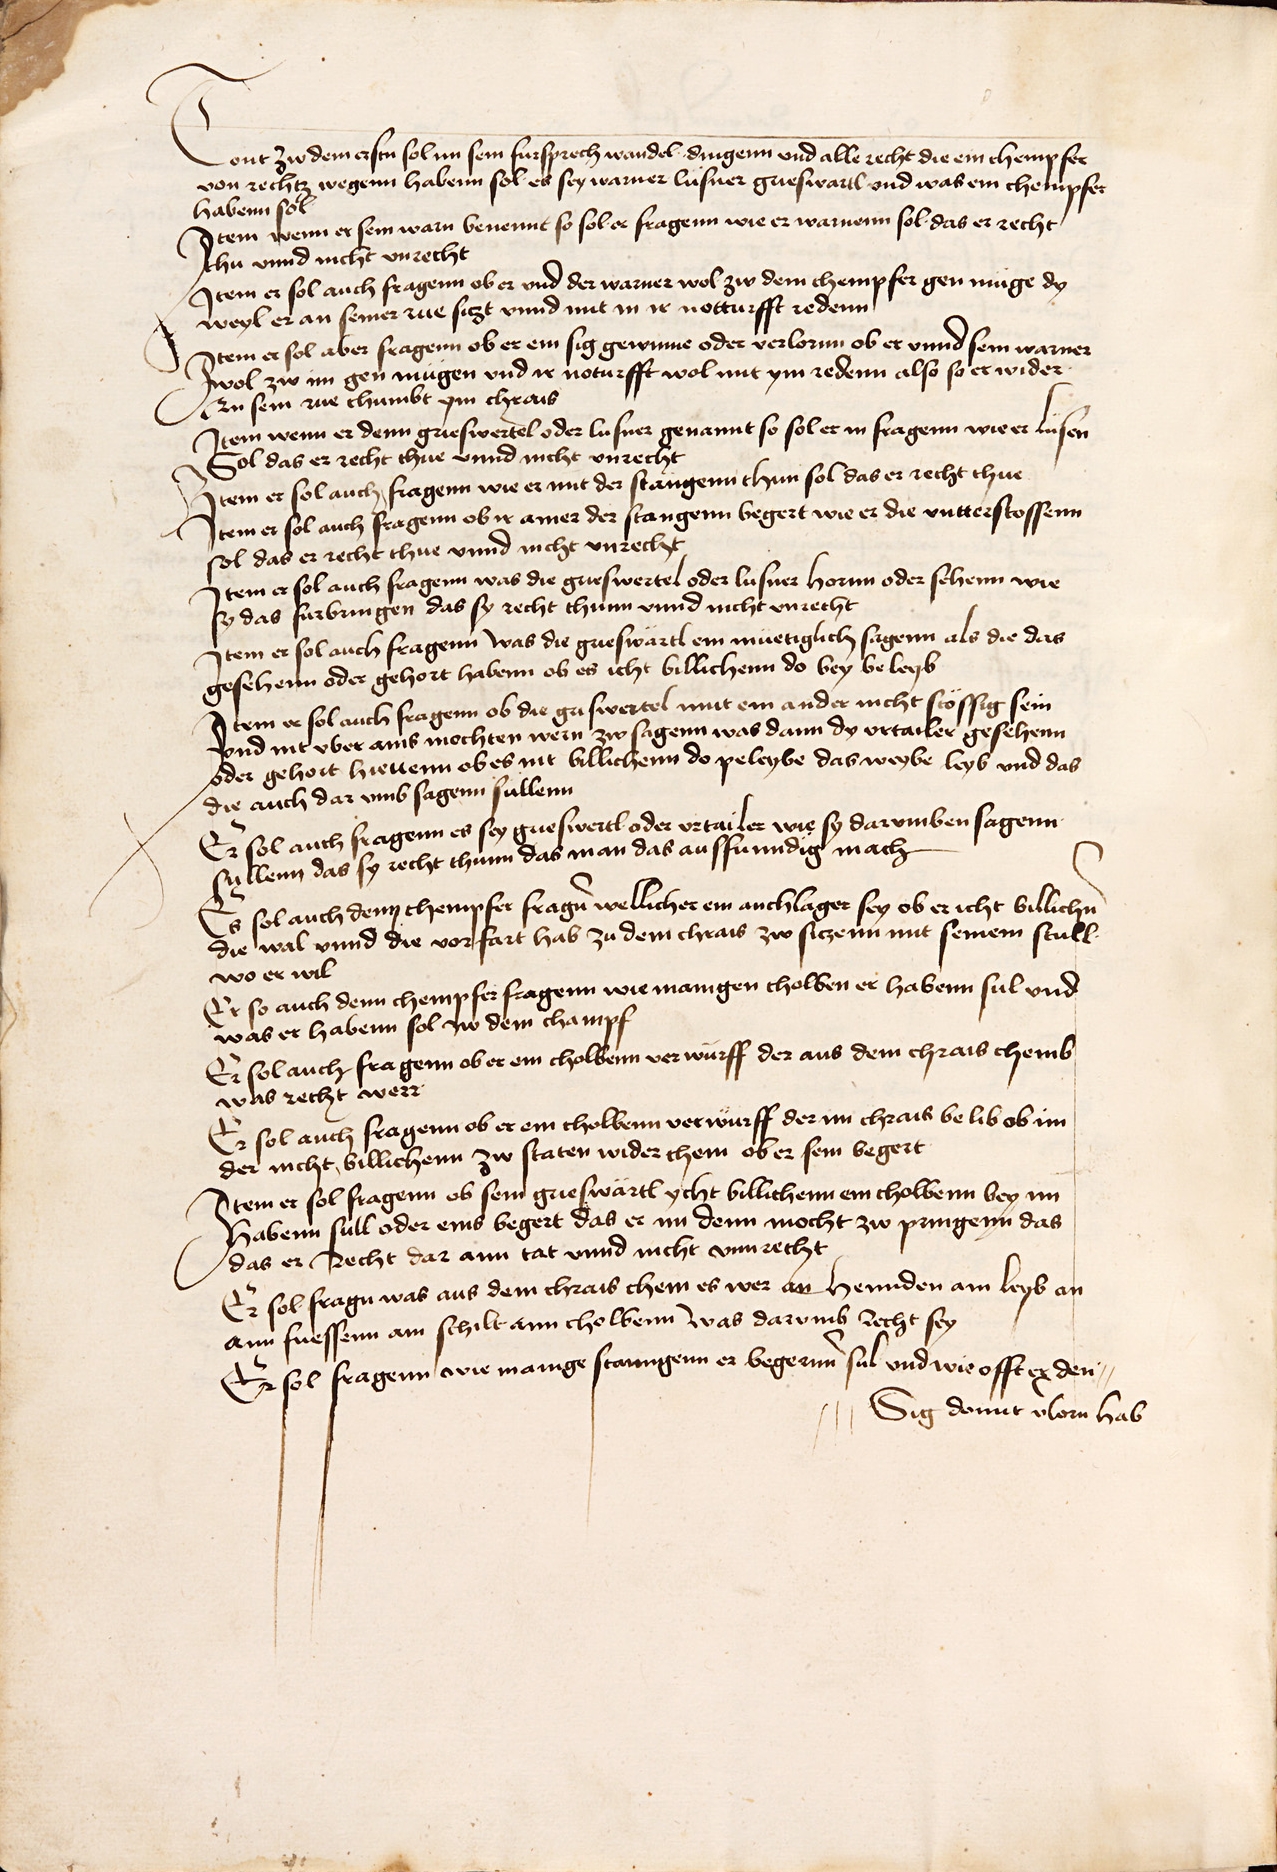 Tout zw dem erstn sol im sein fursprech wandel dingenn vnd alle recht die ein chempfer
von rechtz wegenn habenn sol es sey warner lusner grieswartl vnd was ein chempfer
habenn sol
Item wenn er sein warn benennt so sol er fragenn wie er warnenn sol das er recht
thu vnnd nicht vnrecht
Item er sol auch fragenn ob er vnd der warner wol zw dem chempfer gen muge dy
weyl er an seiner rue siczt vnnd mit in ir notturfft redenn
Item er sol aber fragenn ob er ein sig gewinne oder verlornn ob er vnnd sein warner
wol zw im gen mugen vnd ir noturfft wol mit ym redenn also so er wider
Zu sein rue chumbt ym chrais
Item wenn er denn grieswertel oder lusner genannt so sol er in fragenn wie er lusen
Sol das er recht thue vnnd nicht vnrecht
Item er sol auch fragenn wie er mit der stangenn thun sol das er recht thue
Item er sol auch fragenn ob ir ainer der stangenn begert wie er die vntterstossenn
sol das er recht thue vnnd nicht vnrecht
Item er sol auch fragenn was die grieswertel oder lusner hornn oder sehenn wie
sy das furbringen das sy recht thunn vnnd nicht vnrecht
Item er sol auch fragenn was die grieswärtl ein müetiglich sagenn als die das
gesehenn oder gehort habenn ob es icht billichenn do bey beleyb
Item er sol auch fragenn ob die griswertel mit ein ander nicht stössig sein
vnd nit vber ains mochten wern zw sagenn was dann dy vrtailer gesehenn
oder gehort hiettenn ob es nit billichenn do peleybe das weybe leyb vnd das
die auch dar vmb sagenn sullenn
Er sol auch fragenn es sey grieswertl oder vrtailer wie sy darumben sagenn
sullenn das sy recht thunn das man das auffünndig mach
Es sol auch denn chempfer fragn wellicher ein anchlager sey ob er icht billichn
die wal vnnd die vor fart hab zu dem chrais zw siczenn mit seinem stull
wo er wil
Er so auch denn chempfer fragenn wie manigen cholben er habenn sul vnd
was er habenn sol zw dem champf
Er sol auch fragenn ob er ein cholbenn verwürff der aus dem chrais chemb
was recht werr
Er sol auch fragenn ob er ein cholbenn verwürff der im chrais belib ob im
der nicht billichenn zw staten wider chem ob er sein begert
Item er sol fragenn ob sein grieswärtl ycht billichenn ein cholbenn bey im
habenn süll oder eins begert das er im denn mocht zw pringenn das
das er Recht dar ann tat vnnd nicht vnnrecht
Er sol fragn was aus dem chrais chem es wer an hennden am leyb an
ann fuessenn am schilt ann cholbenn was darumb Recht sey
Er sol fragenn wie manige stanngenn er begernn sul vnd wie offt er den
Sig domit vlorn hab